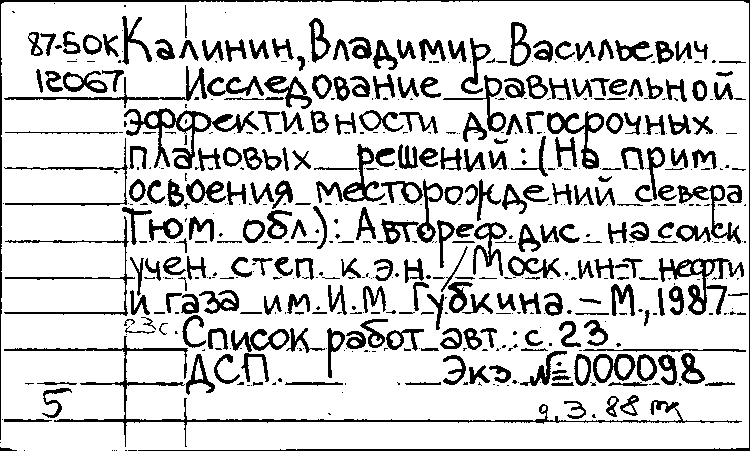 87-50К Калинин, Владимир Васильевич
12067 Исследование сравнительной
эффективности долгосрочных
плановых решений: (На прим.
освоения месторождений севера
Тюм. обл.): Автореф. дис. на соиск.
учен. степ. к.э.н. / Моск. ин-т нефти
и газа им. И.М. Губкина. – М., 1987. –
23с. Список работ авт.: с. 23.
ДСП. Экз. № 000098
5 9.3.88